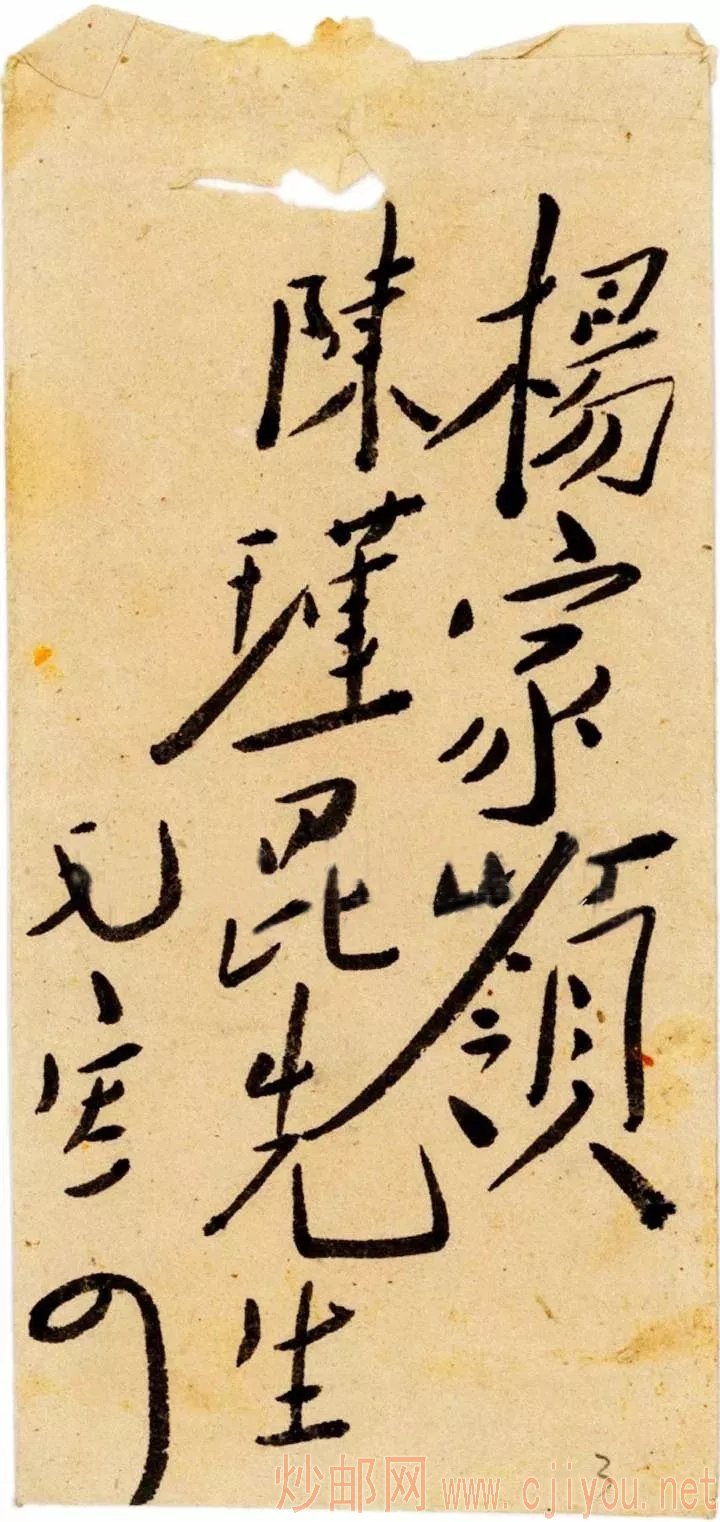 楊家嶺
陳瑾昆先生
毛寄
3
炒邮网 www.cjiyou.net